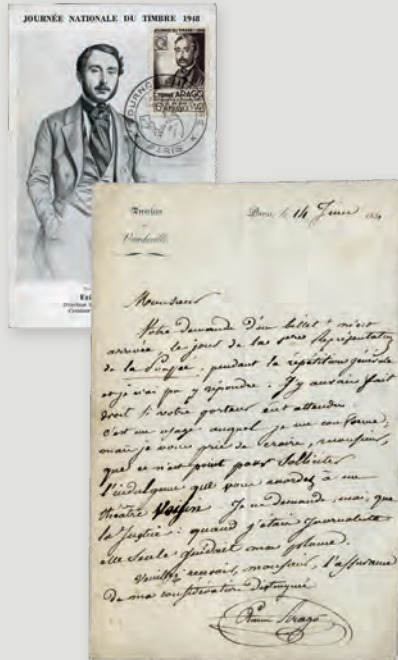 JOURNÉE NATIONALE DU TIMBRE 1948
JOURNÉE DU TIMBRE 1948
ARAGO
PARIS
Direction
du
Vaudeville
Paris, le 14 183
Monsieur
Votre demande d'un billet m'est
arrivée le jour de la 1ere Représentation
de la pendant la répétition générale
et je n'ai pu y répondre. J'y aurais fait
droit si votre porteur eut attendu.
c'est un usage auquel je me conforme;
mais je vous prie de croire, monsieur,
que ce n'est point pour solliciter
l'indulgence que vous accordez à un
théâtre voisin. Je ne demande, moi, que
la Justice: quand j'étais Journaliste
elle seule guidait ma plume.
Veuillez recevoir, monsieur, l'assurance
de ma considération distinguée
Arago